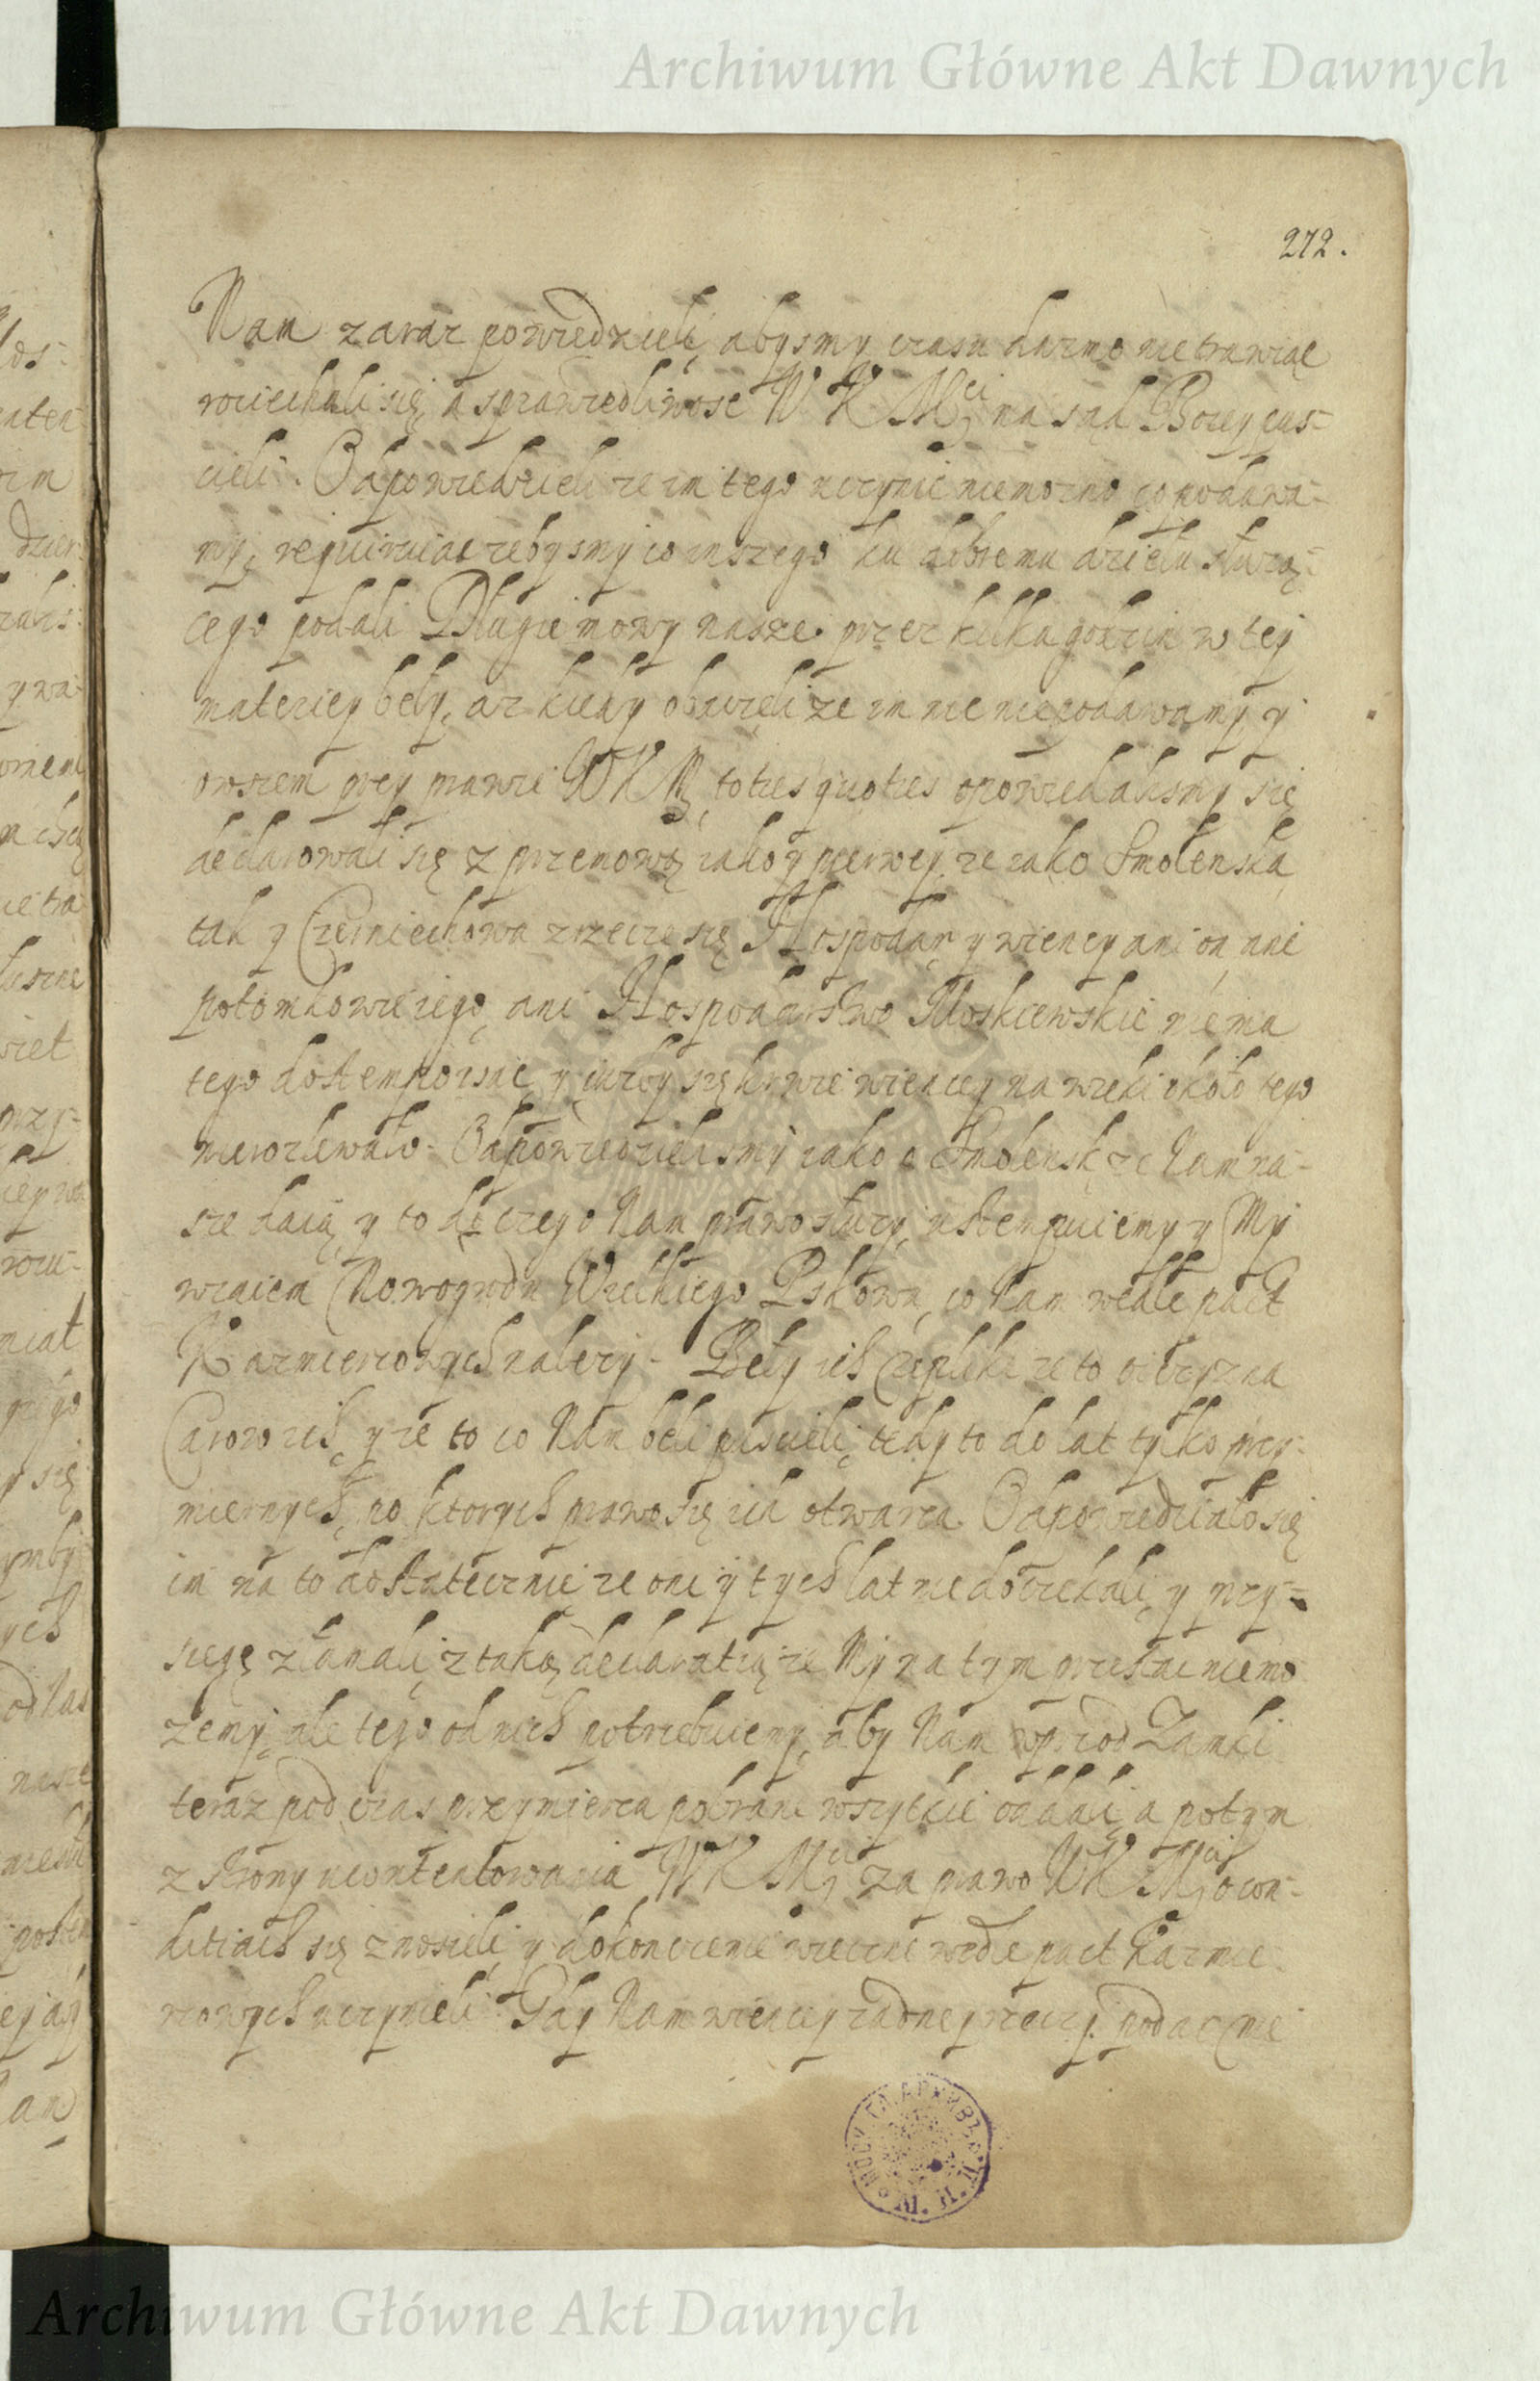 Archiwum Główne Akt Dawnych
272.
Nam zaraz powiedzieli, abysmy czasu darmo nie trawiąc
roziechali się, a sprawiedliwosc W K Mci na sąd Bozy pus-
cieli. Odpowiedzieli ze im tego uczynic niemozno co podawa-
my, requiruiac zebysmy co inszego ku dobremu dziełu słuzą-
cego podali Długie mowy nasze przez kilka godzin w tey
materiey beły, az kiedy obaczeli ze im nic niepodawamy, y
owszem przy prawie W K M toties quoties opowiedalismy się
declarowali się z przemową iako y pierwey, ze iako Smolenska,
tak y Czerniechowa zrzecze się Hospodar y wiencey ani on, ani
potomkowie iego, ani Hospodarstwo Moskiewskie niema
tego dostempowac, y iuzby się krwie wiencey na wieki około tego
nierozlewało. Odpowiedzielismy iako o Smolensk, ze Nam na-
sze daią, y to do czego Nam prawo słuzy, ustempuiemy y My
wzaiem Nowogrodu Wielkiego Pskowa, co Nam wedle pact
Kazmierzowych nalezy. Beły ich repliki ze to oiczyzna
Carow ich, y ze to co Nam beli puscieli, tedy to do lat tylko przy-
miernych, po ktorych prawo się ich otwarza. Odpowiedziało się
im na to dostatecznie, ze oni y tych lat niedoczekali, y przy-
sięgę złamali, z taką declaratią, ze My na tym przestac niemo
zemy, ale tego od nich potrzebuiemy, aby Nam wprzod Zamki
teraz pod czas przymierza pobrane wszytkie oddali, a potym
z strony ucontentowania W K Mci za prawo W K Mci o con-
ditiach się znosieli, y dokonczenie wieczne wedle pact Kazmie-
rzowych uczynieli. Gdy Nam wiencey zadney rzeczy podac nie
Archiwum Główne Akt Dawnych